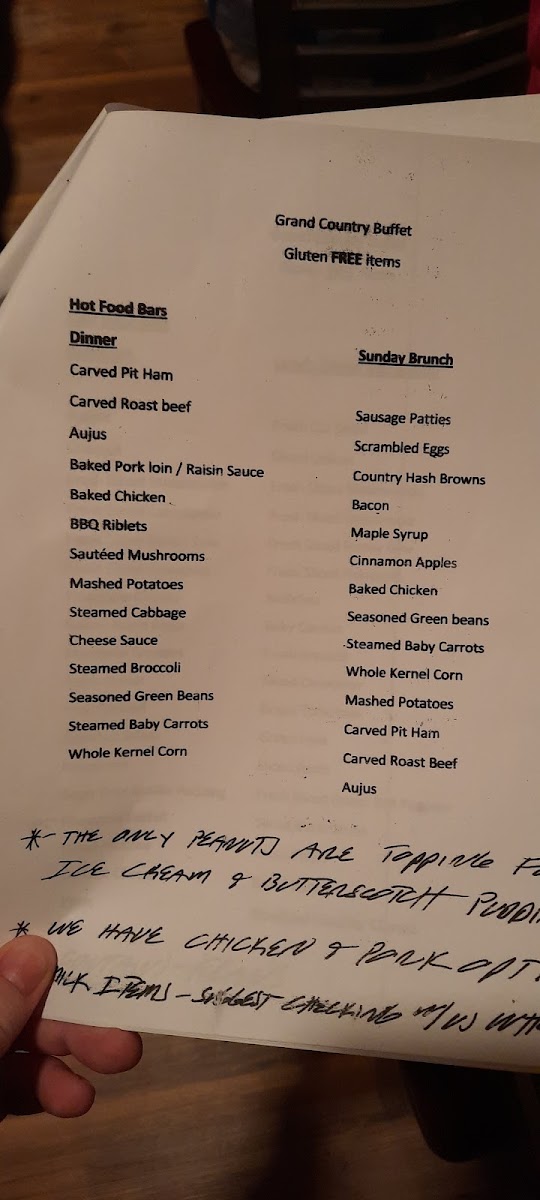 Grand Country Buffet
Gluten FREE items
Hot Food Bars
Dinner
Carved Pit Ham
Carved Roast beef
Aujus
Baked Pork loin / Raisin Sauce
Baked Chicken
BBQ Riblets
Sautéed Mushrooms
Mashed Potatoes
Steamed Cabbage
Cheese Sauce
Steamed Broccoli
Seasoned Green Beans
Steamed Baby Carrots
Whole Kernel Corn
Sunday Brunch
Sausage Patties
Scrambled Eggs
Country Hash Browns
Bacon
Maple Syrup
Cinnamon Apples
Baked Chicken
Seasoned Green beans
Steamed Baby Carrots
Whole Kernel Corn
Mashed Potatoes
Carved Pit Ham
Carved Roast Beef
Aujus
* THE ONLY PEANUTS ARE TOPPING
ICE CREAM & BUTTERSCOTCH
* WE HAVE CHICKEN & PORK
MILK ITEMS - SUGGEST CHECKING W/US